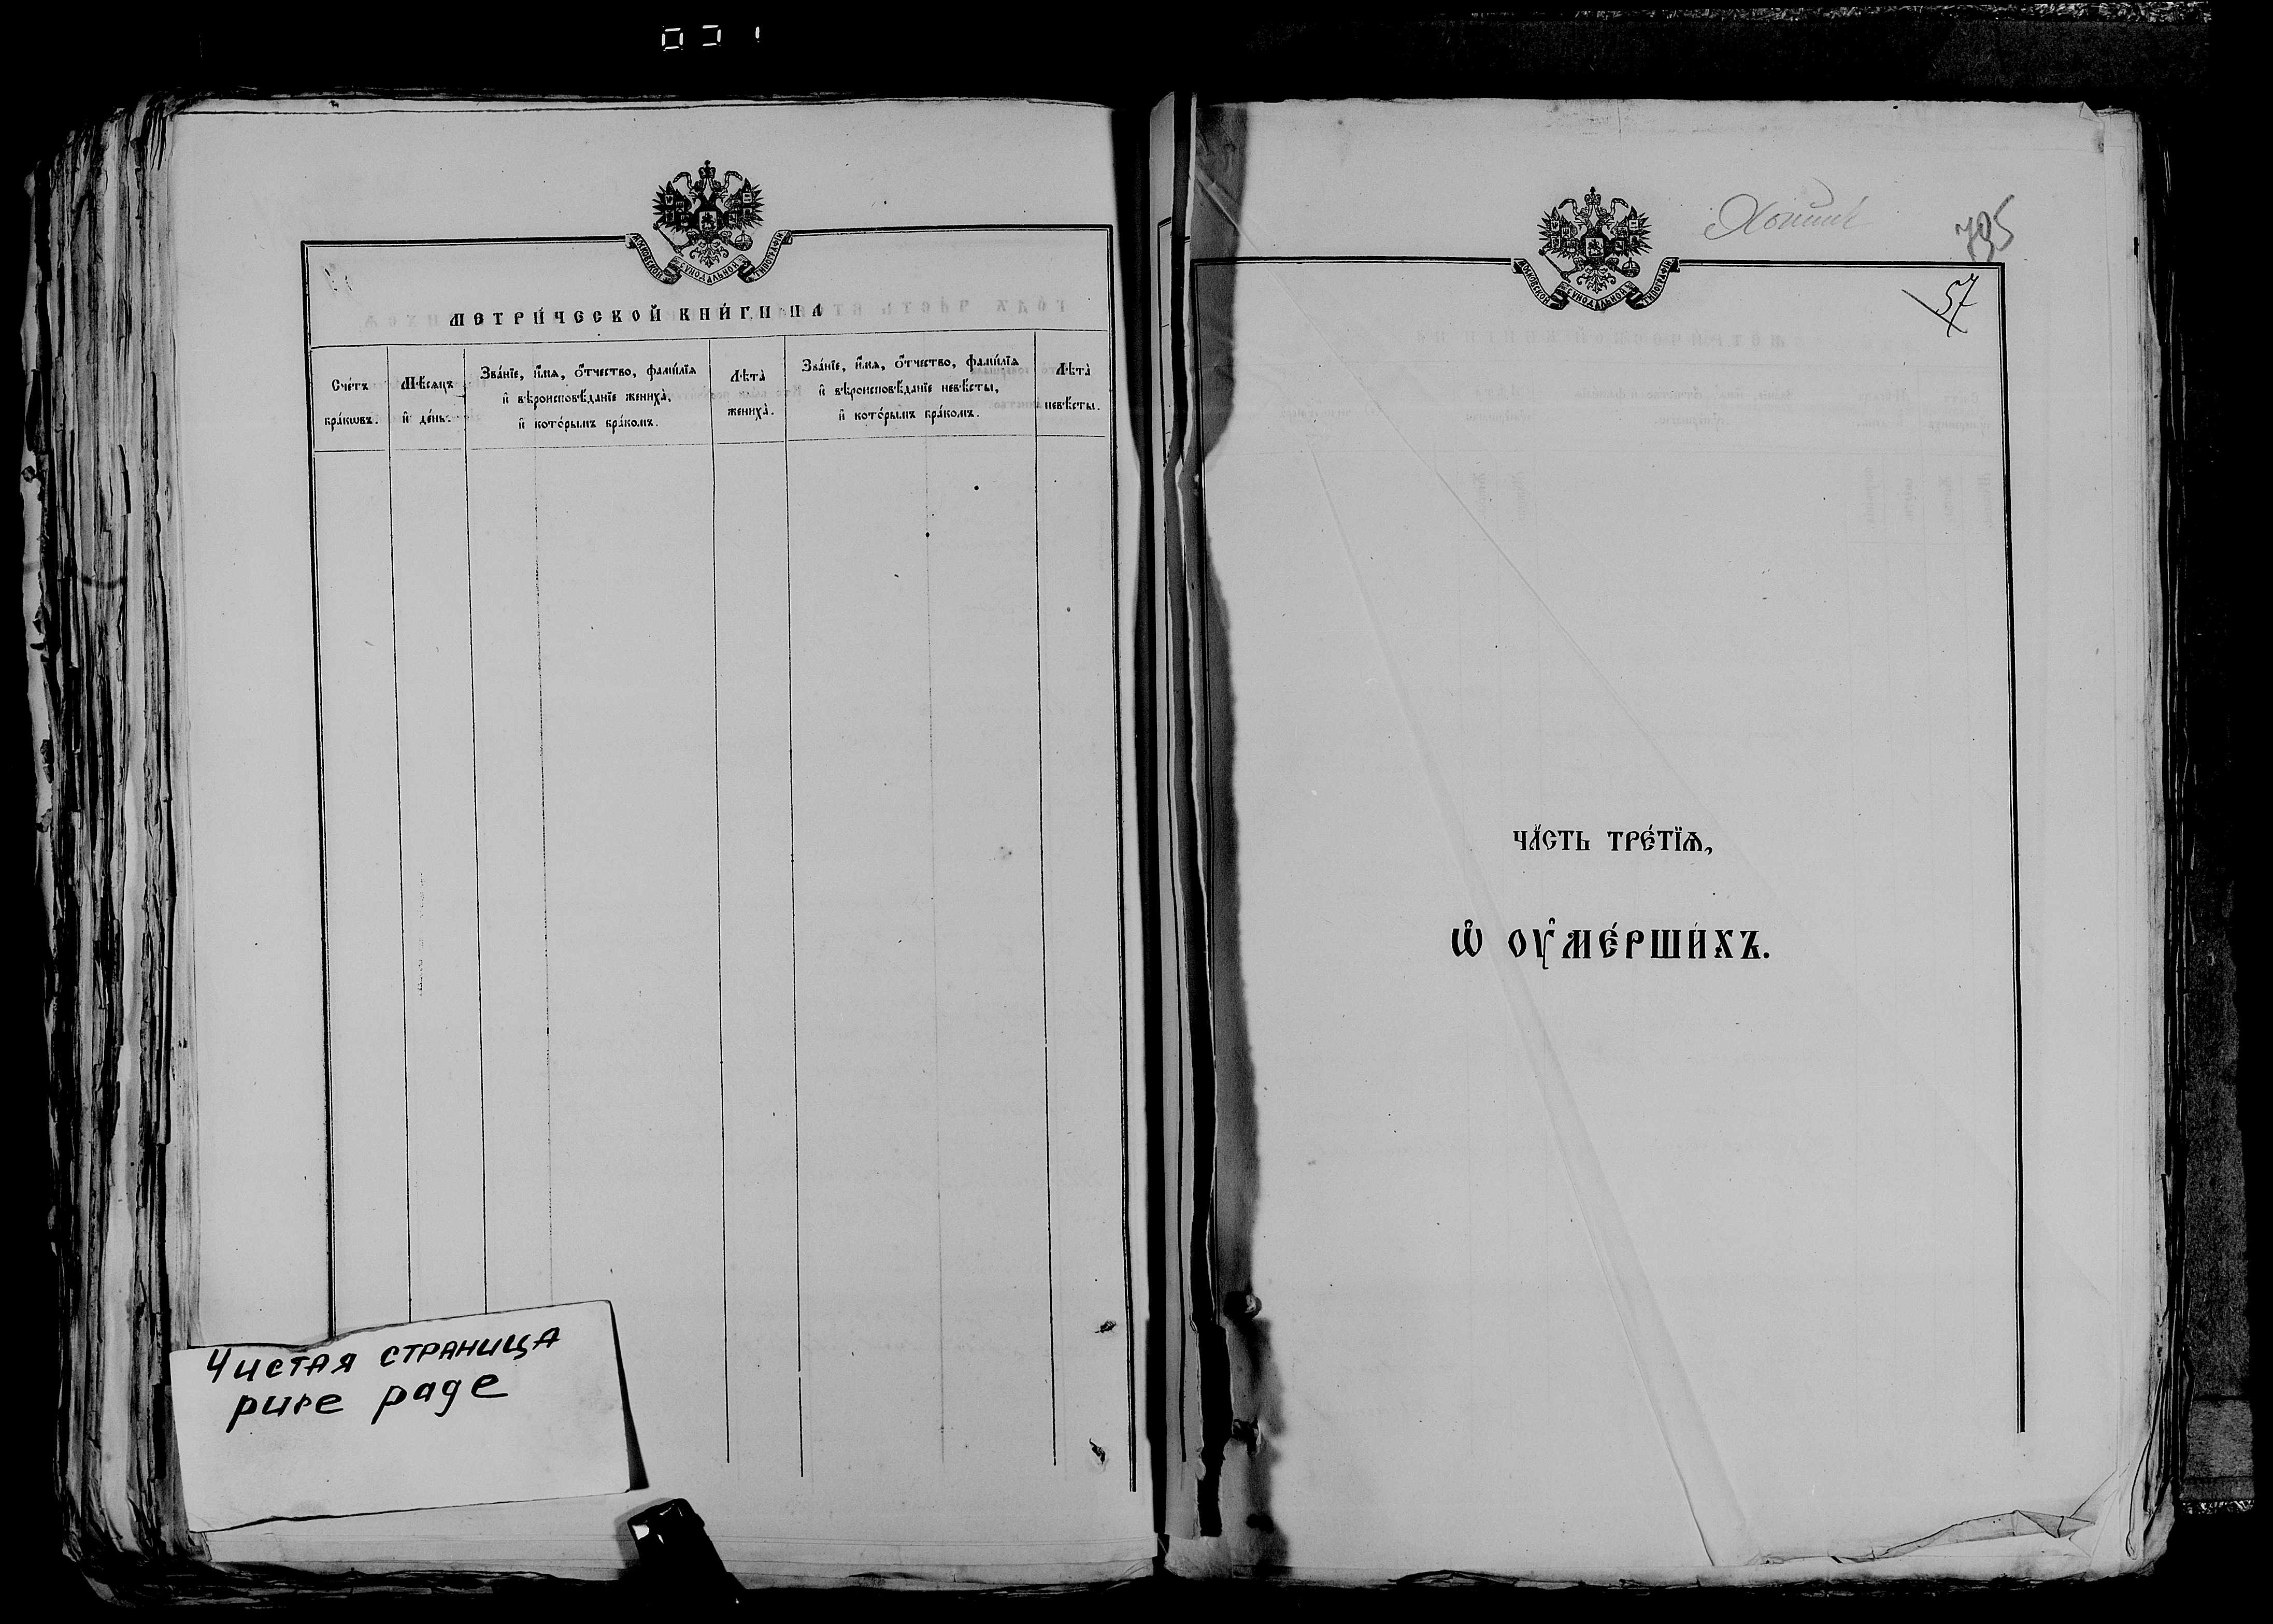 МОСКОВСКОЙ СѴНОДАЛЬНОЙ ТИПОГРАФІИ
МЕТРИ́ЧЕСКОЙ КНИ́ГИ НА
Сче́тъ бра́кωвъ.
Мѣ́сяцъ и҆ де́нь.
Зва́нїе, и҆́мя, ѻ҆́тчество, фами́лїя
и҆ вѣроисповѣ́данїе жениха̀,
и҆ кото́рымъ бра́комъ.
Лѣта̀ жениха̀.
Зва́нїе, и҆́мя, ѻ҆́тчество, фами́лїя
и҆ вѣроисповѣ́данїе невѣ́сты,
и҆ кото́рымъ бра́комъ.
Лѣта̀ невѣ́сты.
Чистая страница
pure page
795
МОСКОВСКОЙ СѴНОДАЛЬНОЙ ТИПОГРАФІИ
57
ЧА́СТЬ ТРЕ́ТЇѦ,
Ѡ҆ ОУ҆МЕ́РШИХЪ.